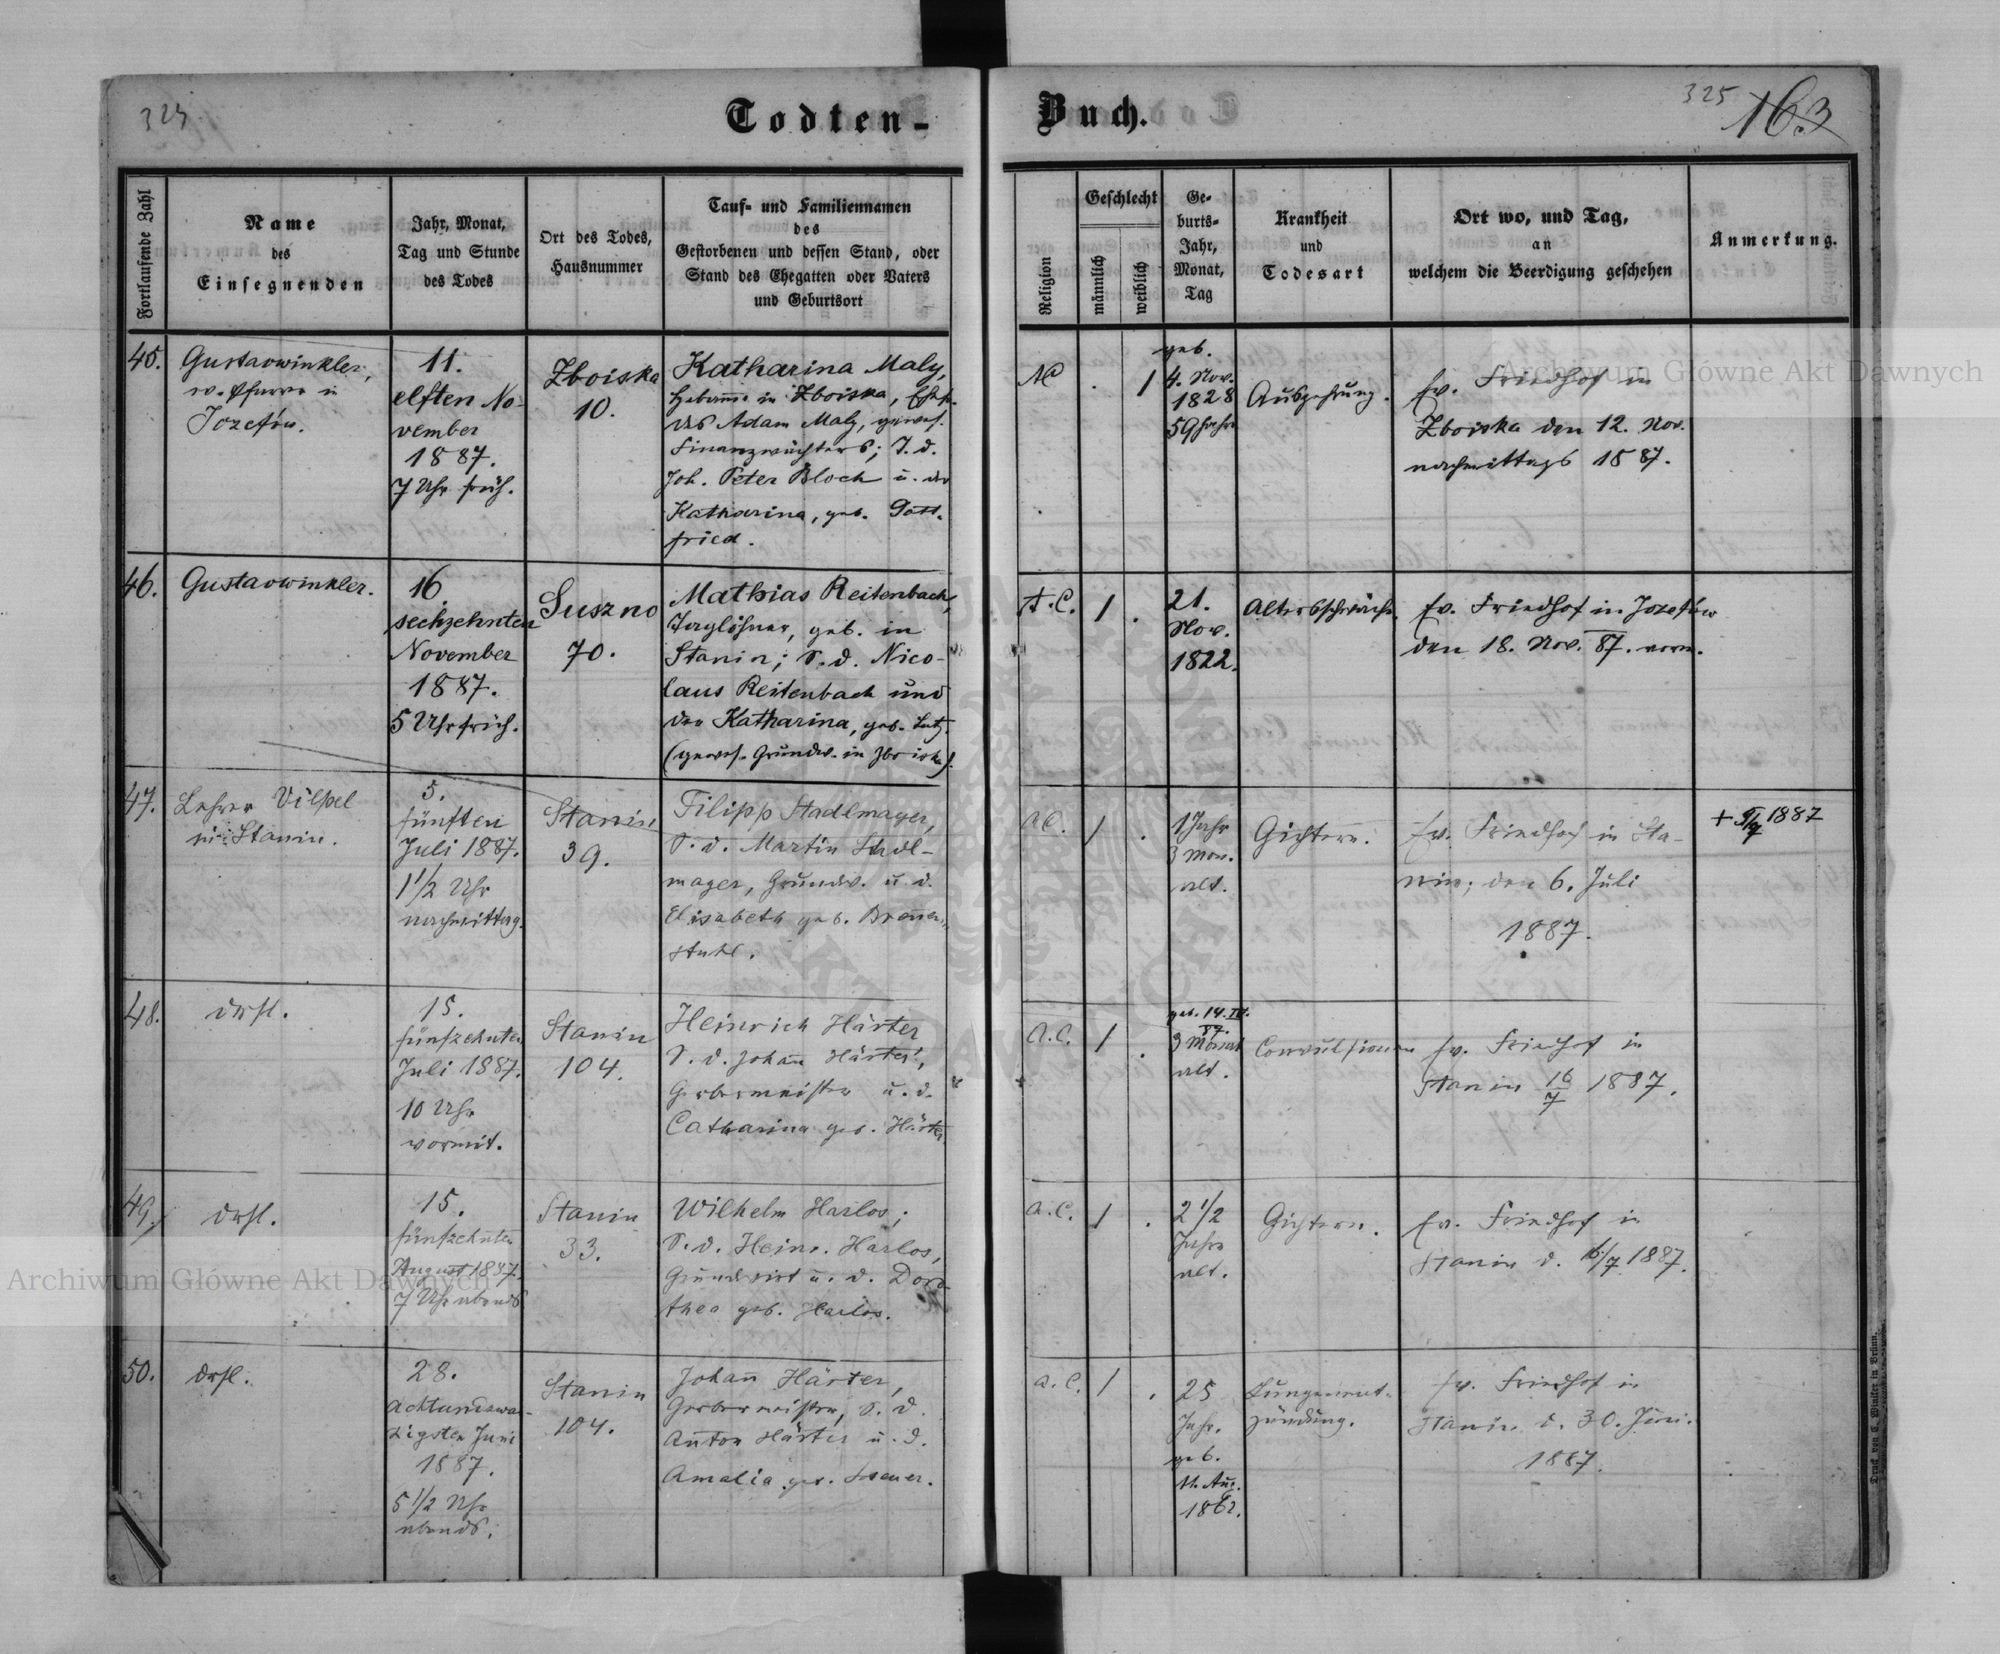 324
Todten-
Buch.
325
163
Fortlaufende Zahl
Name
des
Einsegnenden
Jahr, Monat,
Tag und Stunde
des Todes
Ort des Todes,
Hausnummer
Tauf- und Familiennamen
des
Gestorbenen und dessen Stand, oder
Stand des Ehegatten oder Vaters
und Geburtsort
Religion
Geschlecht
männlich
weiblich
Ge-
burts-
Jahr,
Monat,
Tag
Krankheit
und
Todesart
Ort wo, und Tag,
an
welchem die Beerdigung geschehen
Anmerkung.
45.
Gustav Winkler,
ev. Pfarrer in
Josefów.
11.
elften No-
vember
1887.
7 Uhr früh.
Zboiska
10.
Katharina Maly,
Hebamme in Zboiska,
des Adam Maly, gewes.
Finanzwächters; T. d.
Joh. Peter Bloch u. der
Katharina, geb. Gott-
fried.
1
geb.
4. Nov.
1828
59 Jahre
Auszehrung.
Ev. Friedhof in
Zboiska den 12. Nov.
nachmittags 1887.
46.
Gustav Winkler.
16.
sechzehnten
November
1887.
5 Uhr früh.
Suszno
70.
Mathias Reitenbach,
Taglöhner, geb. in
Stanin; S. d. Nico-
laus Reitenbach und
der Katharina, geb.
(gewes. Grundw. in Zboiska).
A.C.
1
21.
Nov.
1822.
Altersschwäche.
Ev. Friedhof in Josefów
den 18. Nov. 87. vorm.
47.
Lehrer Vilpel
in Stanin.
5.
fünften
Juli 1887.
1 1/2 Uhr
nachmittag.
Stanin
39.
Filipp Stadlmayer,
S. d. Martin Stadl-
mayer, Grundw. u. d.
Elisabeth geb. Bronner-
stuhl.
A.C.
1
1 Jahr
3 Mon.
alt.
Gichtern.
Ev. Friedhof in Sta-
nin; den 6. Juli
1887.
+ 5/7 1887
48.
drsl.
15.
fünfzehnten
Juli 1887.
10 Uhr
vormit.
Stanin
104.
Heinrich Härter
S. d. Johann Härter,
Gerbermeister u. d.
Catharina geb. Härter
A.C.
1
geb. 14. IV.
87.
3 Monat
alt.
Convulsionen
Ev. Friedhof in
Stanin 16/7 1887.
49.
drsl.
15.
fünfzehnten
August 1887.
7 Uhr abends
Stanin
33.
Wilhelm Harlos;
S. d. Heinr. Harlos,
Grundwirt u. d. Doro-
thea geb. Harlos.
A.C.
1
2 1/2
Jahre
alt.
Gichtern.
Ev. Friedhof in
Stanin d. 16/7 1887.
50.
drsl.
28.
achtundzwan-
zigsten Juni
1887.
5 1/2 Uhr
abends.
Stanin
104.
Johann Härter,
Gerbermeister, S. d.
Anton Härter u. d.
Amalia geb.
A.C.
1
25
Jahr.
geb.
11. Aug.
1862.
Lungenent-
zündung.
Ev. Friedhof in
Stanin d. 30. Juni.
1887.
Druck von C. Winiker in Brünn.
Archiwum Główne Akt Dawnych
Archiwum Główne Akt Dawnych